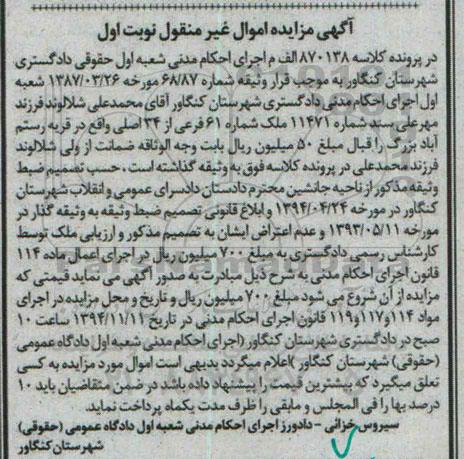 آگهی مزایده اموال غیر منقول نوبت اول
در پرونده کلاسه ۸۷۰۱۳۸ الف م اجرای احکام مدنی شعبه اول حقوقی دادگستری
شهرستان کنگاور به موجب قرار وثیقه شماره ۶۸/۸۷ مورخه ۱۳۸۷/۰۳/۲۶ شعبه
اول اجرای احکام مدنی دادگستری شهرستان کنگاور آقای محمدعلی شلالوند فرزند
مهرعلی سند شماره ۱۱۴۷۱ ملک شماره ۶۱ فرعی از ۳۴ اصلی واقع در قریه رستم
آباد بزرگ را قبال مبلغ ۵۰ میلیون ریال بابت وجه الوثاقه ضمانت از ولی شلالوند
فرزند محمدعلی در پرونده کلاسه فوق به وثیقه گذاشته است . حسب تصمیم ضبط
وثیقه مذکور از ناحیه جانشین محترم دادستان دادسرای عمومی و انقلاب شهرستان
کنگاور در مورخه ۱۳۹۴/۰۴/۲۴ و ابلاغ قانونی تصمیم ضبط وثیقه به وثیقه گذار در
مورخه ۱۳۹۳/۰۵/۱۱ و عدم اعتراض ایشان به تصمیم مذکور و ارزیابی ملک توسط
کارشناس رسمی دادگستری به مبلغ ۷۰۰ میلیون ریال در اجرای اعمال ماده ۱۱۴
قانون اجرای احکام مدنی به شرح ذیل مبادرت به صدور آگهی می نماید قیمتی که
مزایده از آن شروع می شود مبلغ ۷۰۰ میلیون ریال و تاریخ و محل مزایده در اجرای
مواد ۱۱۴ و ۱۱۷ و ۱۱۹ قانون اجرای احکام مدنی در تاریخ ۱۳۹۴/۱۱/۱۱ ساعت ۱۰
صبح در دادگستری شهرستان کنگاور (اجرای احکام مدنی شعبه اول دادگاه عمومی
(حقوقی) شهرستان کنگاور )اعلام میگردد بدیهی است اموال مورد مزایده به کسی
تعلق میگیرد که بیشترین قیمت را پیشنهاد داده باشد در ضمن متقاضیان باید ۱۰
درصد بها را فی المجلس و مابقی را ظرف مدت یکماه پرداخت نماید.
سیروس خزائی - دادورز اجرای احکام مدنی شعبه اول دادگاه عمومی (حقوقی)
شهرستان کنگاور